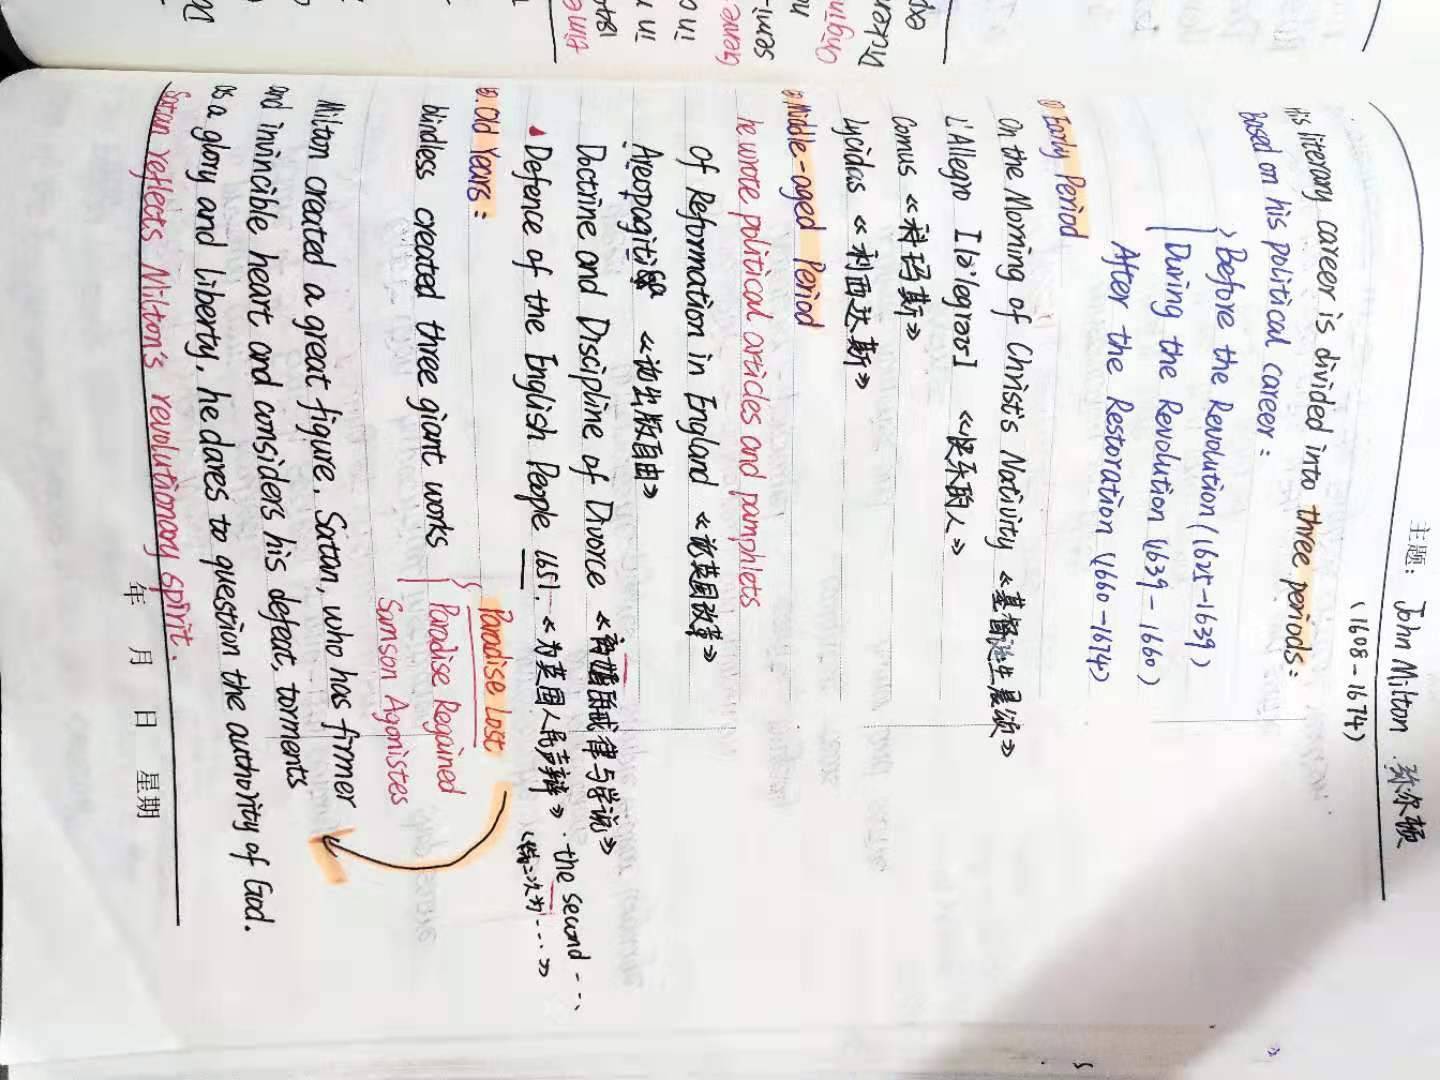 主题: John Milton 弥尔顿
(1608-1674)
His literary career is divided into three periods:
based on his political career:
Before the Revolution (1625-1639)
During the Revolution (1639-1660)
After the Restoration (1660-1674)
① Early Period
On the Morning of Christ's Nativity 《基督诞生晨颂》
L'Allegro 《快乐的人》
Comus 《科玛斯》
Lycidas 《利西达斯》
② Middle-aged Period
he wrote political articles and pamphlets
Of Reformation in England 《论英国改革》
Areopagitica 《论出版自由》
Doctrine and Discipline of Divorce 《离婚的戒律与学说》
Defence of the English People 1651. 《为英国人民声辩》. the second ...
《第二次为....》
③. Old Years:
Paradise Lost
blindess created three giant works Paradise Regained
Samson Agonistes
Milton created a great figure. Satan, who has firmer
and invincible heart and considers his defeat, torments
as a glory and liberty, he dares to question the authority of God.
Satan reflects Milton's revolutionary spirit.
年 月 日 星期